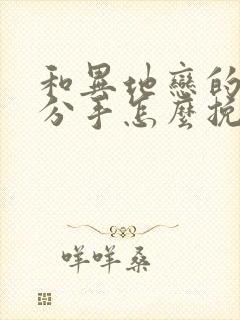 和異地戀的
分手怎麼挽
咩咩桑